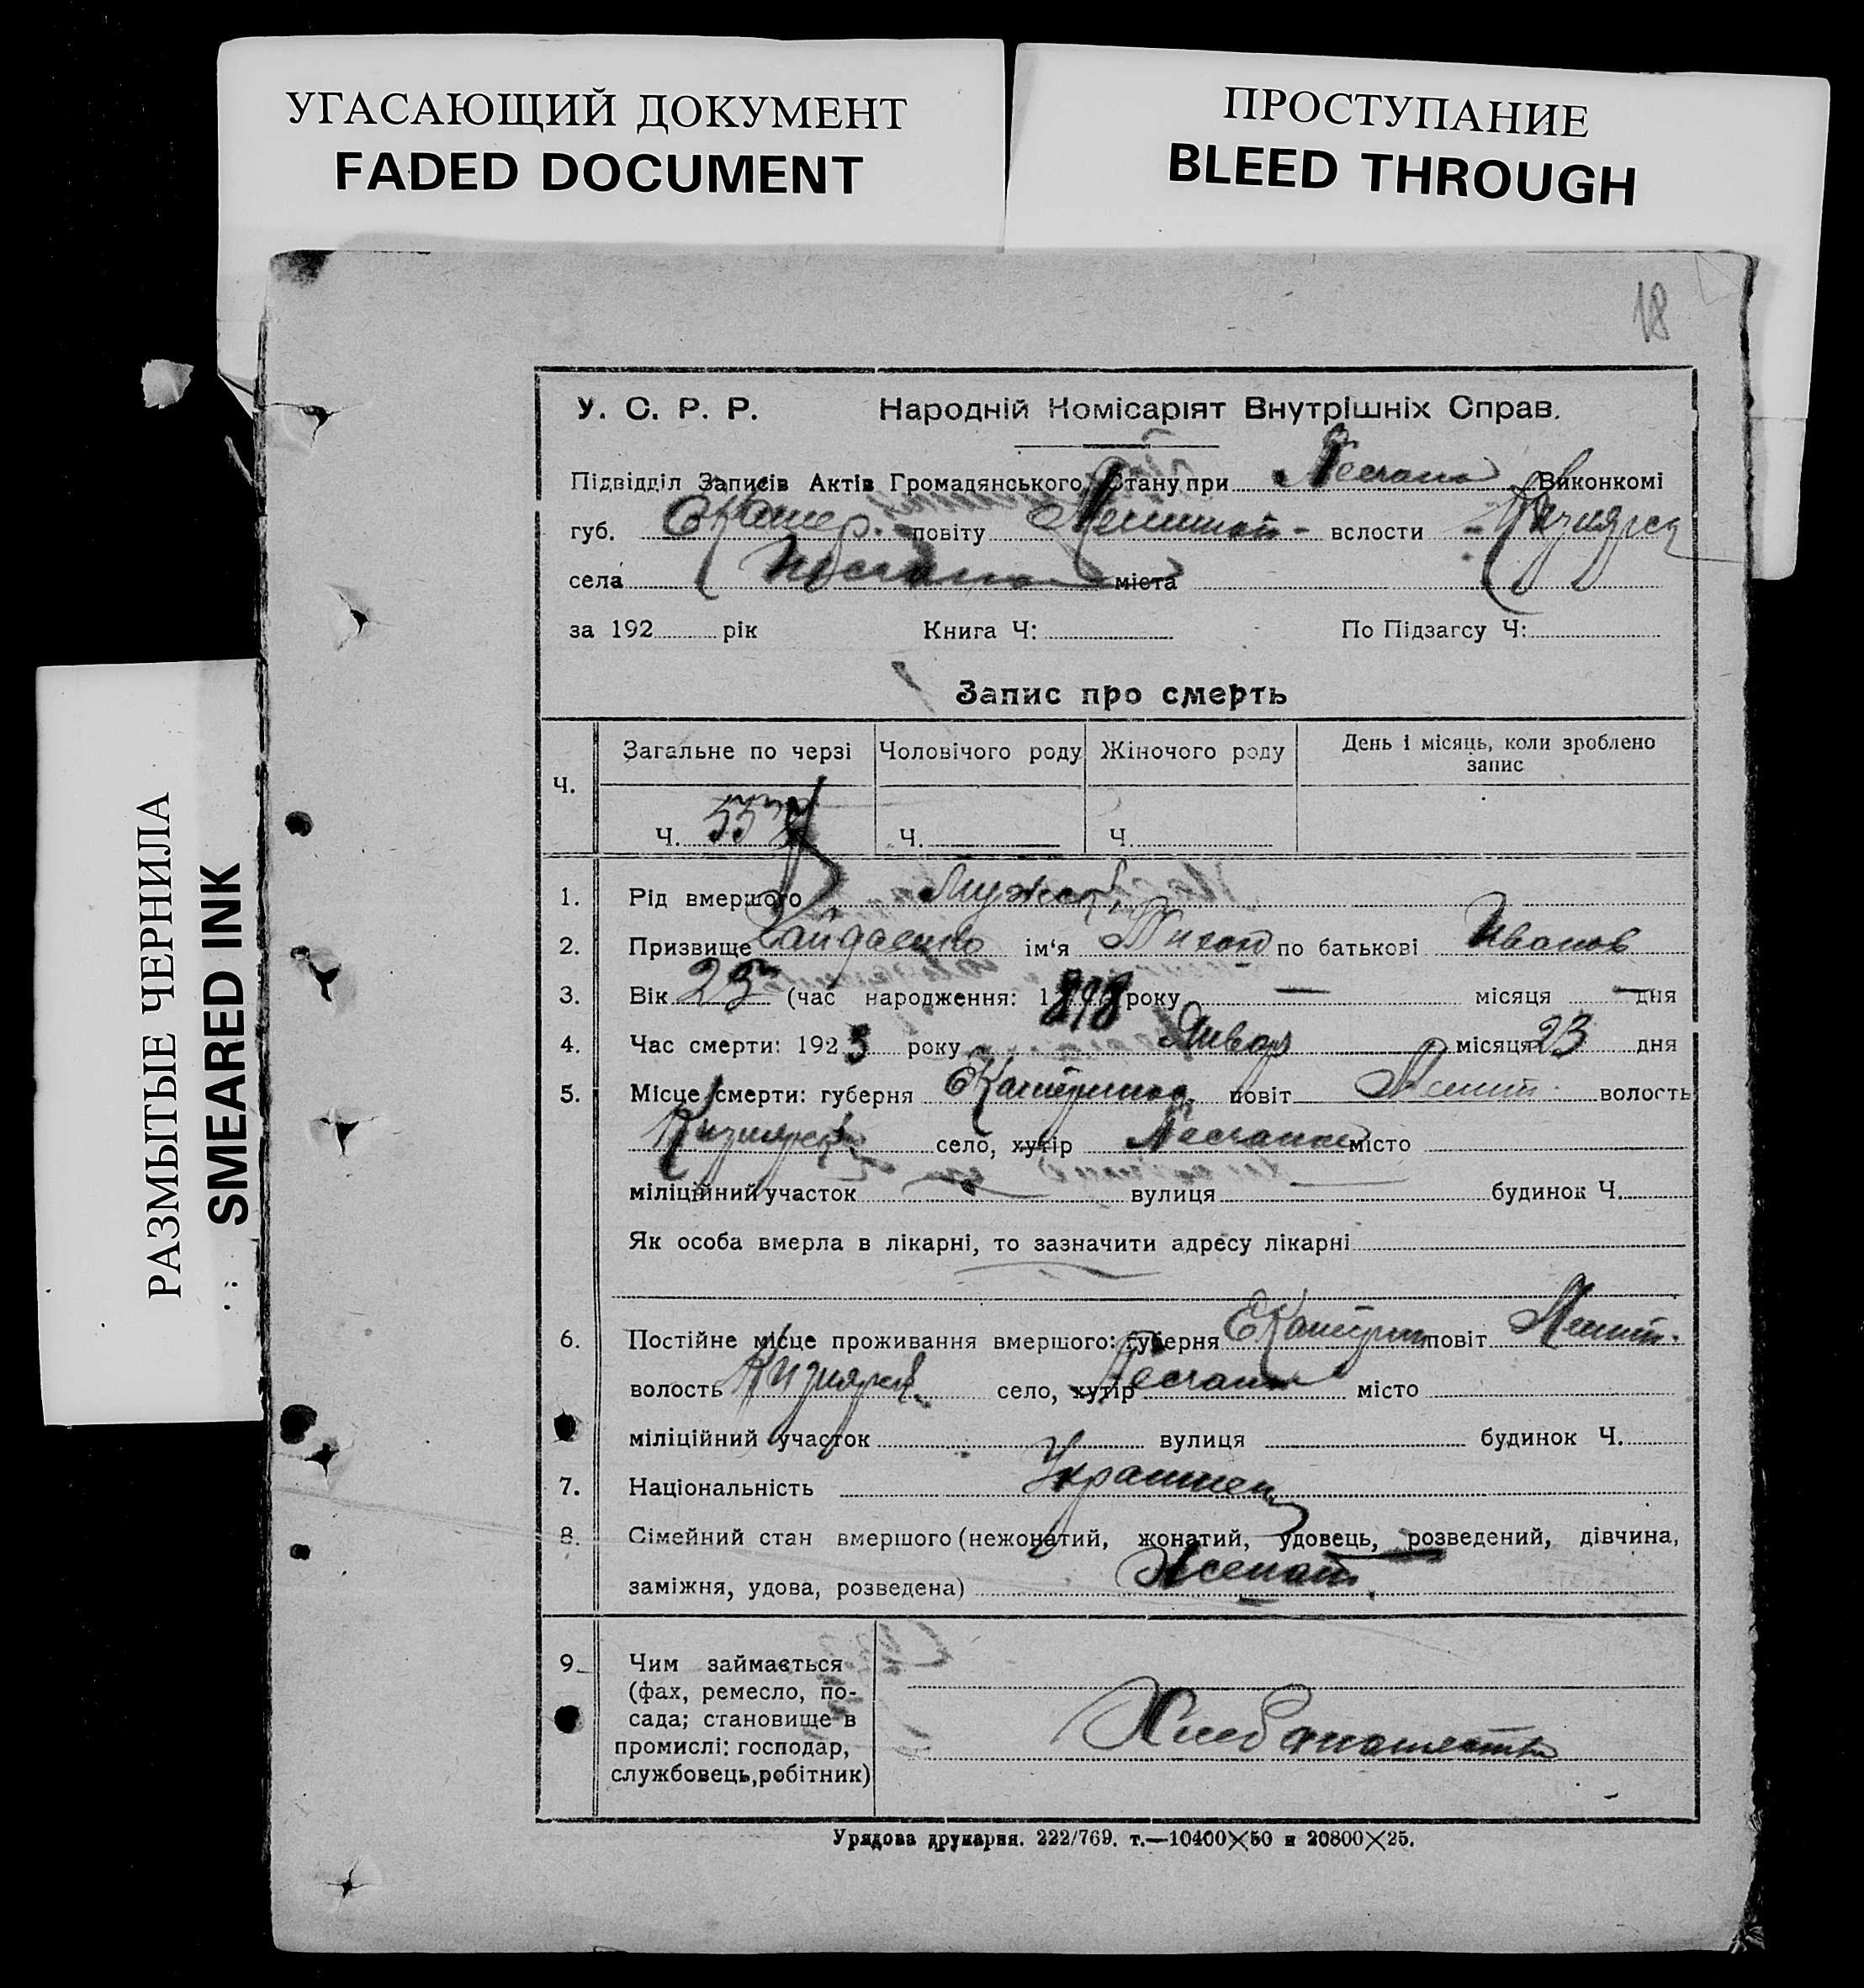 УГАСАЮЩИЙ ДОКУМЕНТ
FADED DOCUMENT
ПРОСТУПАНИЕ
BLEED THROUGH
РАЗМЫТЫЕ ЧЕРНИЛА
SMEARED INK
18
У. С. Р. Р. Народній Комісаріят Внутрішніх Справ.
Підвідділ Записів Актів Громадянського Стану при Виконкомі
губ. Екатер. повіту вслости
села міста
за 192 рік Книга Ч: По Підзагсу Ч:
Запис про смерть
Ч. Загальне по черзі Чоловічого роду Жіночого роду День і місяць, коли зроблено запис
Ч. Ч. Ч.
1. Рід вмершого Мужск
2. Призвище Гайдаенко ім'я Тихон по батькові Иванов
3. Вік 25 (час народження: 1898 року — місяця — дня
4. Час смерти: 1923 року Январ місяця 23 дня
5. Місце смерти: губерня Екатеринос. повіт Мелит. волость
село, хутір Песчаное місто
міліційний участок вулиця — будинок Ч.
Як особа вмерла в лікарні, то зазначити адресу лікарні
6. Постійне місце проживання вмершого: губерня Екатерин повіт Мелит.
волость Кизиярск. село, хутір Песчаное місто
міліційний участок вулиця будинок Ч.
7. Національність Украинец
8. Сімейний стан вмершого (нежонатий, жонатий, удовець, розведений, дівчина,
заміжня, удова, розведена) Женат.
9. Чим займається
(фах, ремесло, по-
сада; становище в
промислі: господар,
службовець, робітник)
Хлебопашество
Урядова друкарня. 222/769. т.—10400×50 и 20800×25.